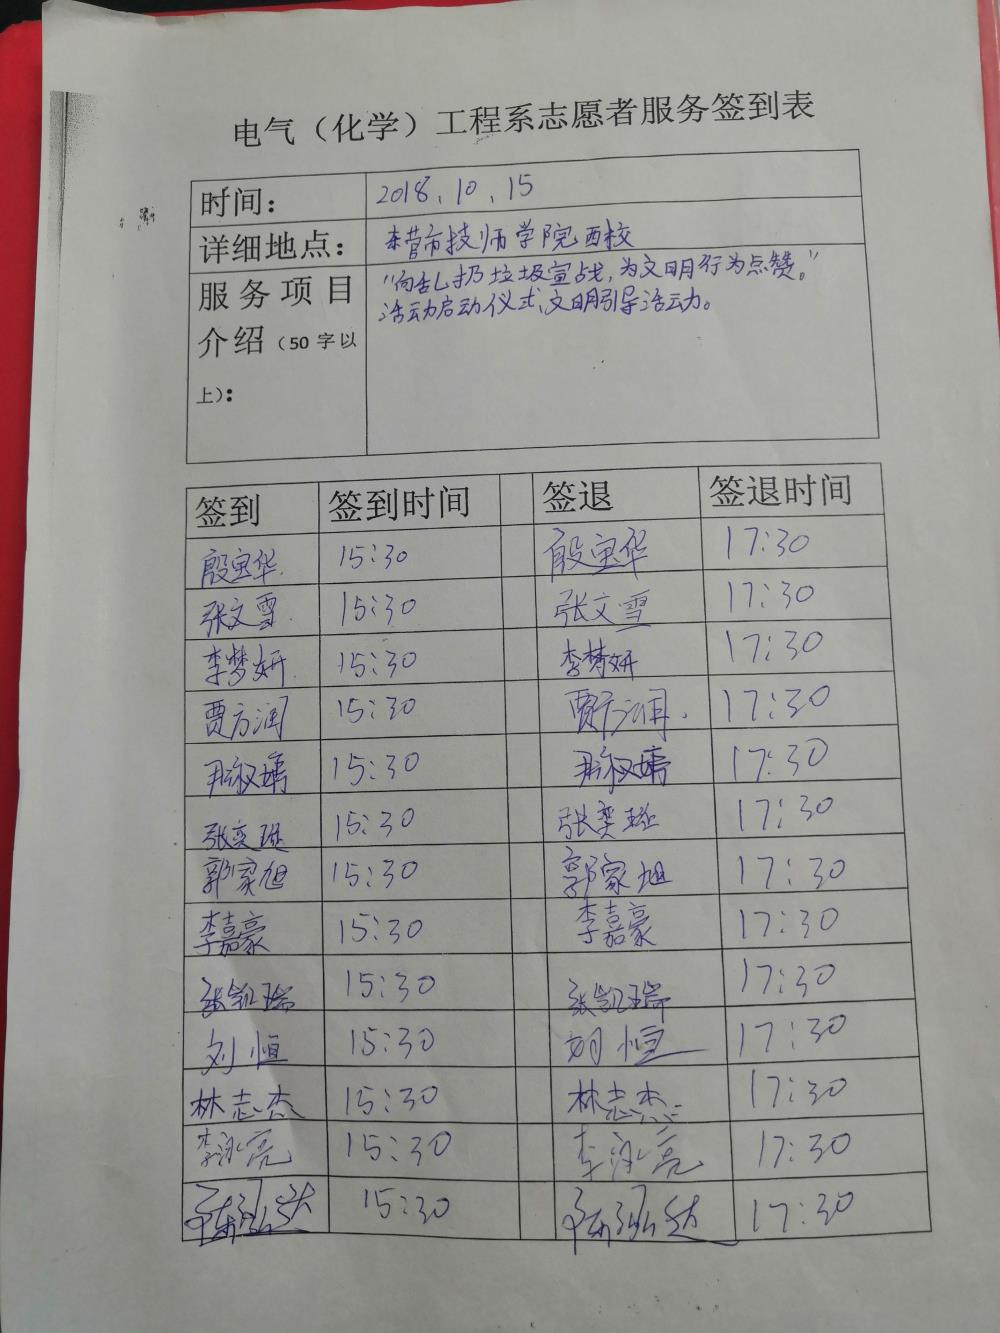 电气（化学）工程系志愿者服务签到表
时间： 2018.10.15
详细地点： 东营市技师学院西校
服务项目介绍（50字以上）：
"向乱扔垃圾宣战，为文明行为点赞。"
活动启动仪式、文明引导活动。
签到 签到时间 签退 签退时间
殷宝华 15:30 殷宝华 17:30
张文雪 15:30 张文雪 17:30
李梦妍 15:30 李梦妍 17:30
贾方润 15:30 贾方润 17:30
15:30 17:30
张奕班 15:30 张奕班 17:30
郭家旭 15:30 郭家旭 17:30
李嘉豪 15:30 李嘉豪 17:30
张凯瑞 15:30 张凯瑞 17:30
刘恒 15:30 恒 17:30
林志杰 15:30 林志杰 17:30
李泳亮 15:30 李泳亮 17:30
陈泓达 15:30 陈泓达 17:30